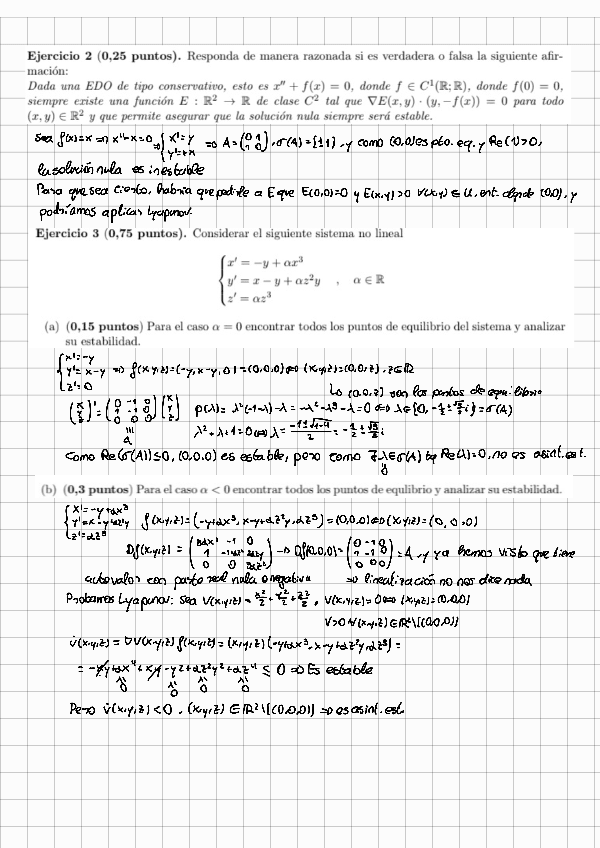 Ejercicio 2 (0,25 puntos). Responda de manera razonada si es verdadera o falsa la siguiente afir-
mación:
Dada una EDO de tipo conservativo, esto es x'' + f(x) = 0, donde f ∈ C¹(ℝ;ℝ), donde f(0) = 0,
siempre existe una función E : ℝ² → ℝ de clase C² tal que ∇E(x, y) · (y, −f(x)) = 0 para todo
(x, y) ∈ ℝ² y que permite asegurar que la solución nula siempre será estable.
Sea f(x)=-x ⇒ x''-x=0 ⇒ { x'=y
y'=+x ⇒ A=(0 1
1 0), σ(A)={±1}, y como (0,0) es pto. eq. y Re(1)>0,
la solución nula es inestable
Para que sea cierto, habría que pedirle a E que E(0,0)=0 y E(x,y)>0 ∀(x,y) ∈ U, ent. de (0,0), y
podríamos aplicar Lyapunov.
Ejercicio 3 (0,75 puntos). Considerar el siguiente sistema no lineal
x' = −y + αx³
y' = x − y + αz²y , α ∈ ℝ
z' = αz³
(a) (0,15 puntos) Para el caso α = 0 encontrar todos los puntos de equilibrio del sistema y analizar
su estabilidad.
{ x'=-y
y'=x-y ⇒ f(x,y,z)=(-y,x-y,0)=(0,0,0) ⇔ (x,y,z)=(0,0,z), z∈ℝ
z'=0
Lo (0,0,z) son los puntos de equilibrio
(x y z)'=(0 -1 0
1 -1 0
0 0 0)(x y z) p(λ)= λ²(-1-λ)-λ=-λ²-λ³-λ=0 ⇔ λ∈{0, -1/2 ± √3/2 i}=σ(A)
A
λ²+λ+1=0 ⇔ λ= (-1±√1-4)/2 = -1/2 ± √3/2 i
Como Re(σ(A))≤0, (0,0,0) es estable, pero como ∃λ∈σ(A) tq Re(λ)=0, no es asint. est.
(b) (0,3 puntos) Para el caso α < 0 encontrar todos los puntos de equlibrio y analizar su estabilidad.
{ x'=-y+αx³
y'=x-y+αz²y f(x,y,z)=(-y+αx³, x-y+αz²y, αz³)=(0,0,0) ⇔ (x,y,z)=(0,0,0)
z'=αz³
Df(x,y,z)=(3αx² -1 0
1 -1+αz² 2αzy
0 0 3αz²) → Df(0,0,0)=(0 -1 0
1 -1 0
0 0 0)=A, y ya hemos visto que tiene
autovalores con parte real nula o negativa ⇒ linealización no nos dice nada
Probamos Lyapunov: Sea V(x,y,z)= x²/2 + y²/2 + z²/2, V(x,y,z)=0 ⇔ (x,y,z)=(0,0,0)
V>0 ∀(x,y,z)∈ℝ²\{(0,0,0)}
V̇(x,y,z)=∇V(x,y,z) f(x,y,z)=(x,y,z)(-y+αx³, x-y+αz²y, αz³)=
= -xy+αx⁴+xy-y²+αz²y²+αz⁴ ≤ 0 ⇒ Es estable
0 0 0 0
Pero V̇(x,y,z)<0, (x,y,z)∈ℝ²\{(0,0,0)} ⇒ es asint. est.